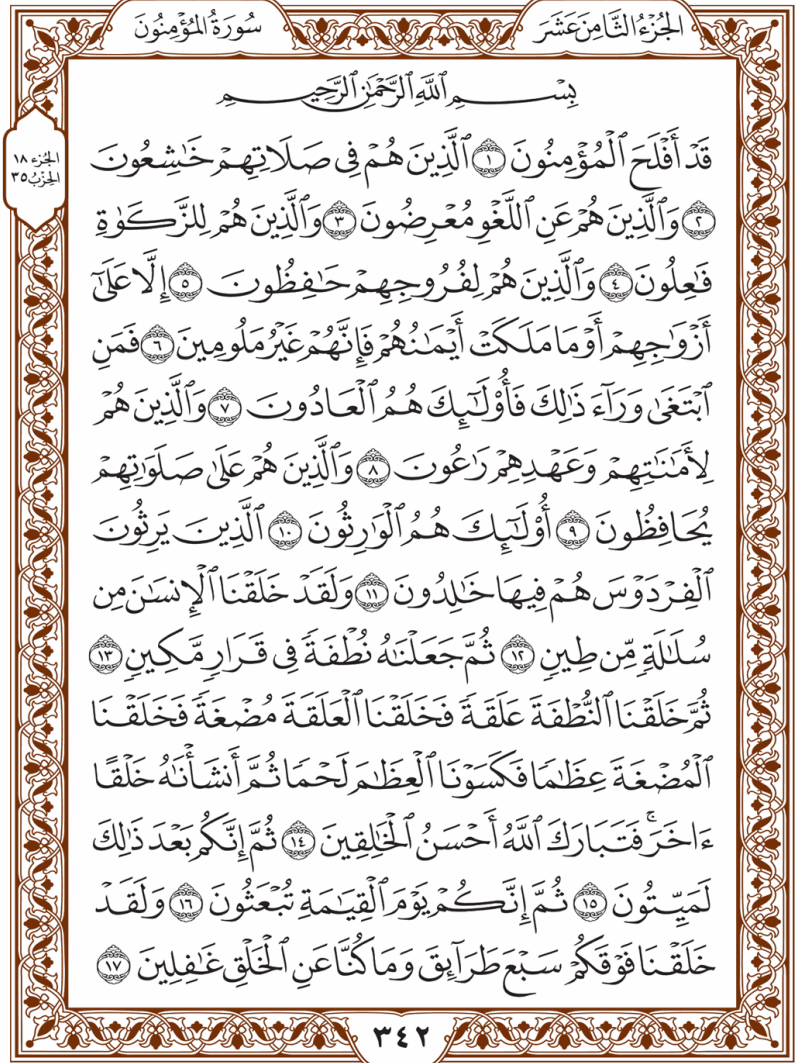 الجُزْءُ الثَّامِنَ عَشَرَ
سُورَةُ المُؤْمِنُونَ
بِسْمِ ٱللَّهِ ٱلرَّحْمَٰنِ ٱلرَّحِيمِ
قَدْ أَفْلَحَ ٱلْمُؤْمِنُونَ ١ ٱلَّذِينَ هُمْ فِى صَلَاتِهِمْ خَٰشِعُونَ
٢ وَٱلَّذِينَ هُمْ عَنِ ٱللَّغْوِ مُعْرِضُونَ ٣ وَٱلَّذِينَ هُمْ لِلزَّكَوٰةِ
فَٰعِلُونَ ٤ وَٱلَّذِينَ هُمْ لِفُرُوجِهِمْ حَٰفِظُونَ ٥ إِلَّا عَلَىٰٓ
أَزْوَٰجِهِمْ أَوْ مَا مَلَكَتْ أَيْمَٰنُهُمْ فَإِنَّهُمْ غَيْرُ مَلُومِينَ ٦ فَمَنِ
ٱبْتَغَىٰ وَرَآءَ ذَٰلِكَ فَأُو۟لَٰٓئِكَ هُمُ ٱلْعَادُونَ ٧ وَٱلَّذِينَ هُمْ
لِأَمَٰنَٰتِهِمْ وَعَهْدِهِمْ رَٰعُونَ ٨ وَٱلَّذِينَ هُمْ عَلَىٰ صَلَوَٰتِهِمْ
يُحَافِظُونَ ٩ أُو۟لَٰٓئِكَ هُمُ ٱلْوَٰرِثُونَ ١٠ ٱلَّذِينَ يَرِثُونَ
ٱلْفِرْدَوْسَ هُمْ فِيهَا خَٰلِدُونَ ١١ وَلَقَدْ خَلَقْنَا ٱلْإِنسَٰنَ مِن
سُلَٰلَةٍ مِّن طِينٍ ١٢ ثُمَّ جَعَلْنَٰهُ نُطْفَةً فِى قَرَارٍ مَّكِينٍ ١٣
ثُمَّ خَلَقْنَا ٱلنُّطْفَةَ عَلَقَةً فَخَلَقْنَا ٱلْعَلَقَةَ مُضْغَةً فَخَلَقْنَا
ٱلْمُضْغَةَ عِظَٰمًا فَكَسَوْنَا ٱلْعِظَٰمَ لَحْمًا ثُمَّ أَنشَأْنَٰهُ خَلْقًا
ءَاخَرَ ۚ فَتَبَارَكَ ٱللَّهُ أَحْسَنُ ٱلْخَٰلِقِينَ ١٤ ثُمَّ إِنَّكُم بَعْدَ ذَٰلِكَ
لَمَيِّتُونَ ١٥ ثُمَّ إِنَّكُمْ يَوْمَ ٱلْقِيَٰمَةِ تُبْعَثُونَ ١٦ وَلَقَدْ
خَلَقْنَا فَوْقَكُمْ سَبْعَ طَرَآئِقَ وَمَا كُنَّا عَنِ ٱلْخَلْقِ غَٰفِلِينَ ١٧
الجُزء ١٨
الحِزبُ ٣٥
٣٤٢